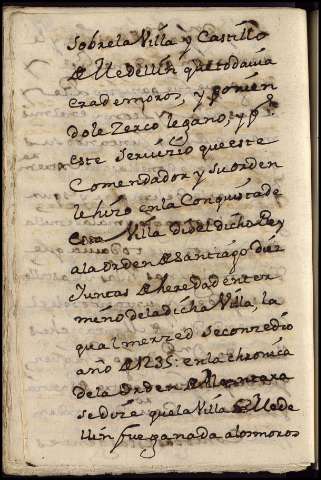 Sobrela Villa y Castillo
de Medellin que todavia
era de moros, y ponien
dole Zerco le gano, y pr
este Servizio que este
Comendador y su orden
le hizo en la Conquista de
esta Villa dio el dicho Rey
a la Orden de Santiago diez
Juntas de heredad en ter
mino de la dicha Villa, la
qual merzed se conzedio
año de 1235: en la chronica
de la Orden de Alcantara
se dize que la Villa de Mede
llin fue ganada a los moros